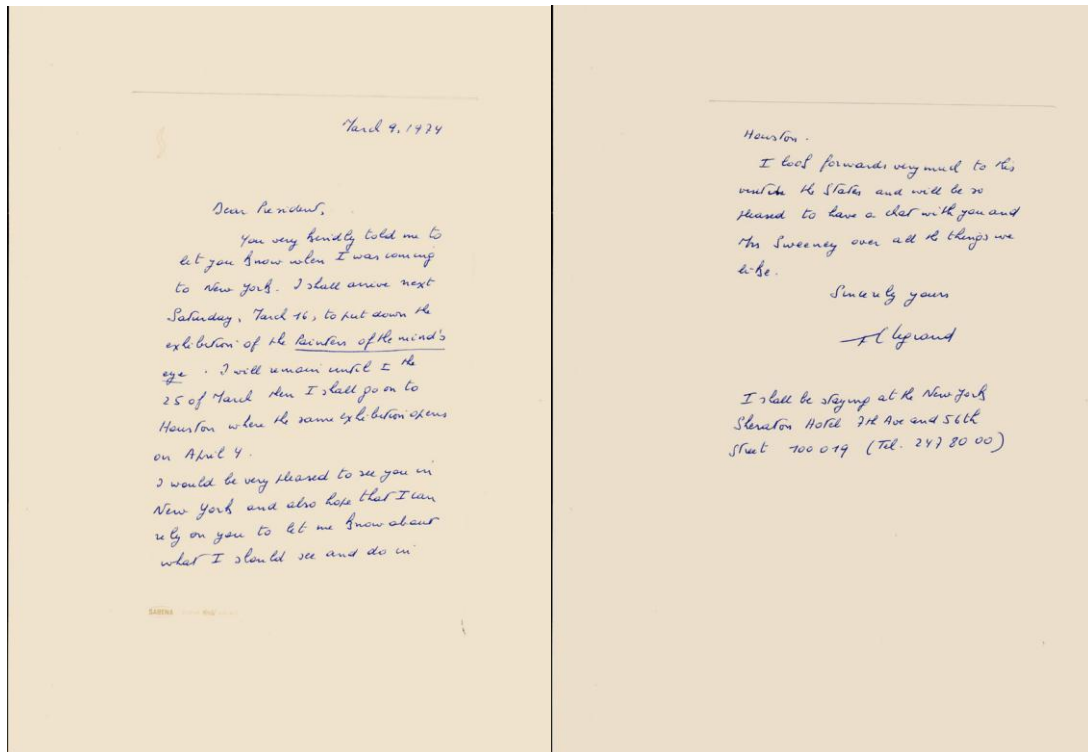 March 9, 1974
Dear President,
You very kindly told me to
let you know when I was coming
to New York. I shall arrive next
Saturday, March 16, to put down the
exhibition of the Painters of the mind's
eye. I will remain until I the
25 of March then I shall go on to
Houston where the same exhibition opens
on April 4.
I would be very pleased to see you in
New York and also hope that I can
rely on you to let me know about
what I should see and do in
SABENA
Houston.
I look forwards very much to this
the States and will be so
pleased to have a chat with you and
Mrs Sweeney over all the things we
like.
Sincerely yours
Legrand
I shall be staying at the New York
Sheraton Hotel 7th Ave and 56th
Street 100019 (Tel. 247 80 00)